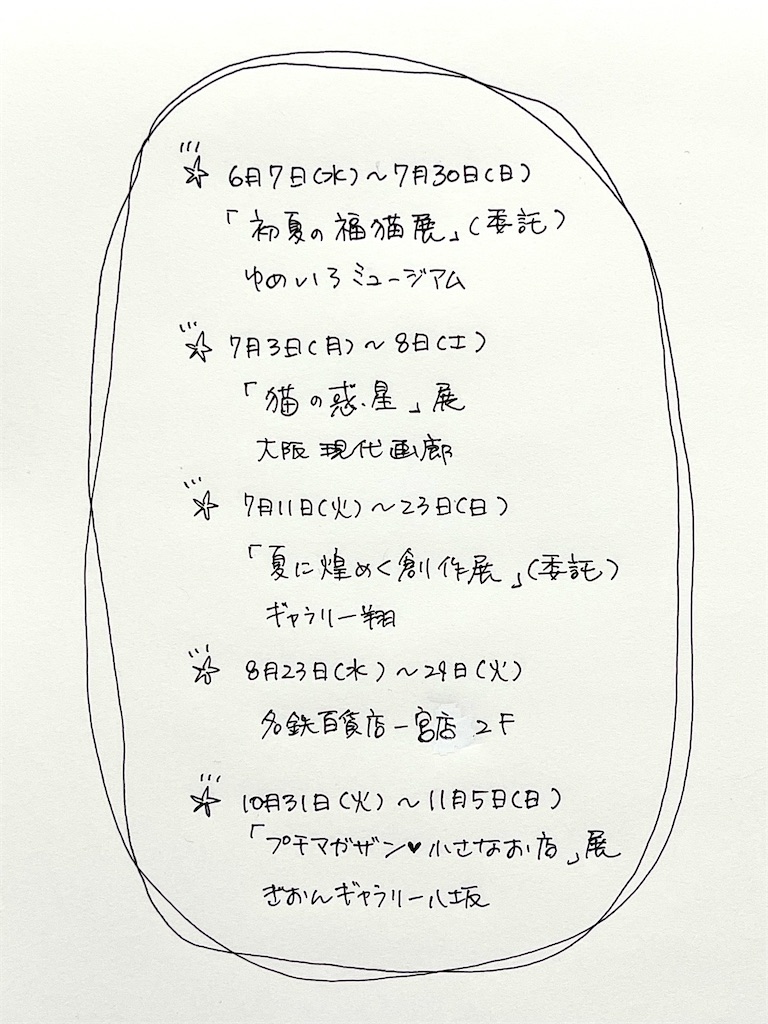 ☆ 6月7日(水)～7月30日(日)
「初夏の福猫展」(委託)
ゆめいろミュージアム
☆ 7月3日(月)～8日(土)
「猫の惑星」展
大阪現代画廊
☆ 7月11日(火)～23日(日)
「夏に煌めく創作展」(委託)
ギャラリー翔
☆ 8月23日(水)～29日(火)
名鉄百貨店一宮店 2F
☆ 10月31日(火)～11月5日(日)
「プチマガザン♥小さなお店」展
ぎおんギャラリー八坂